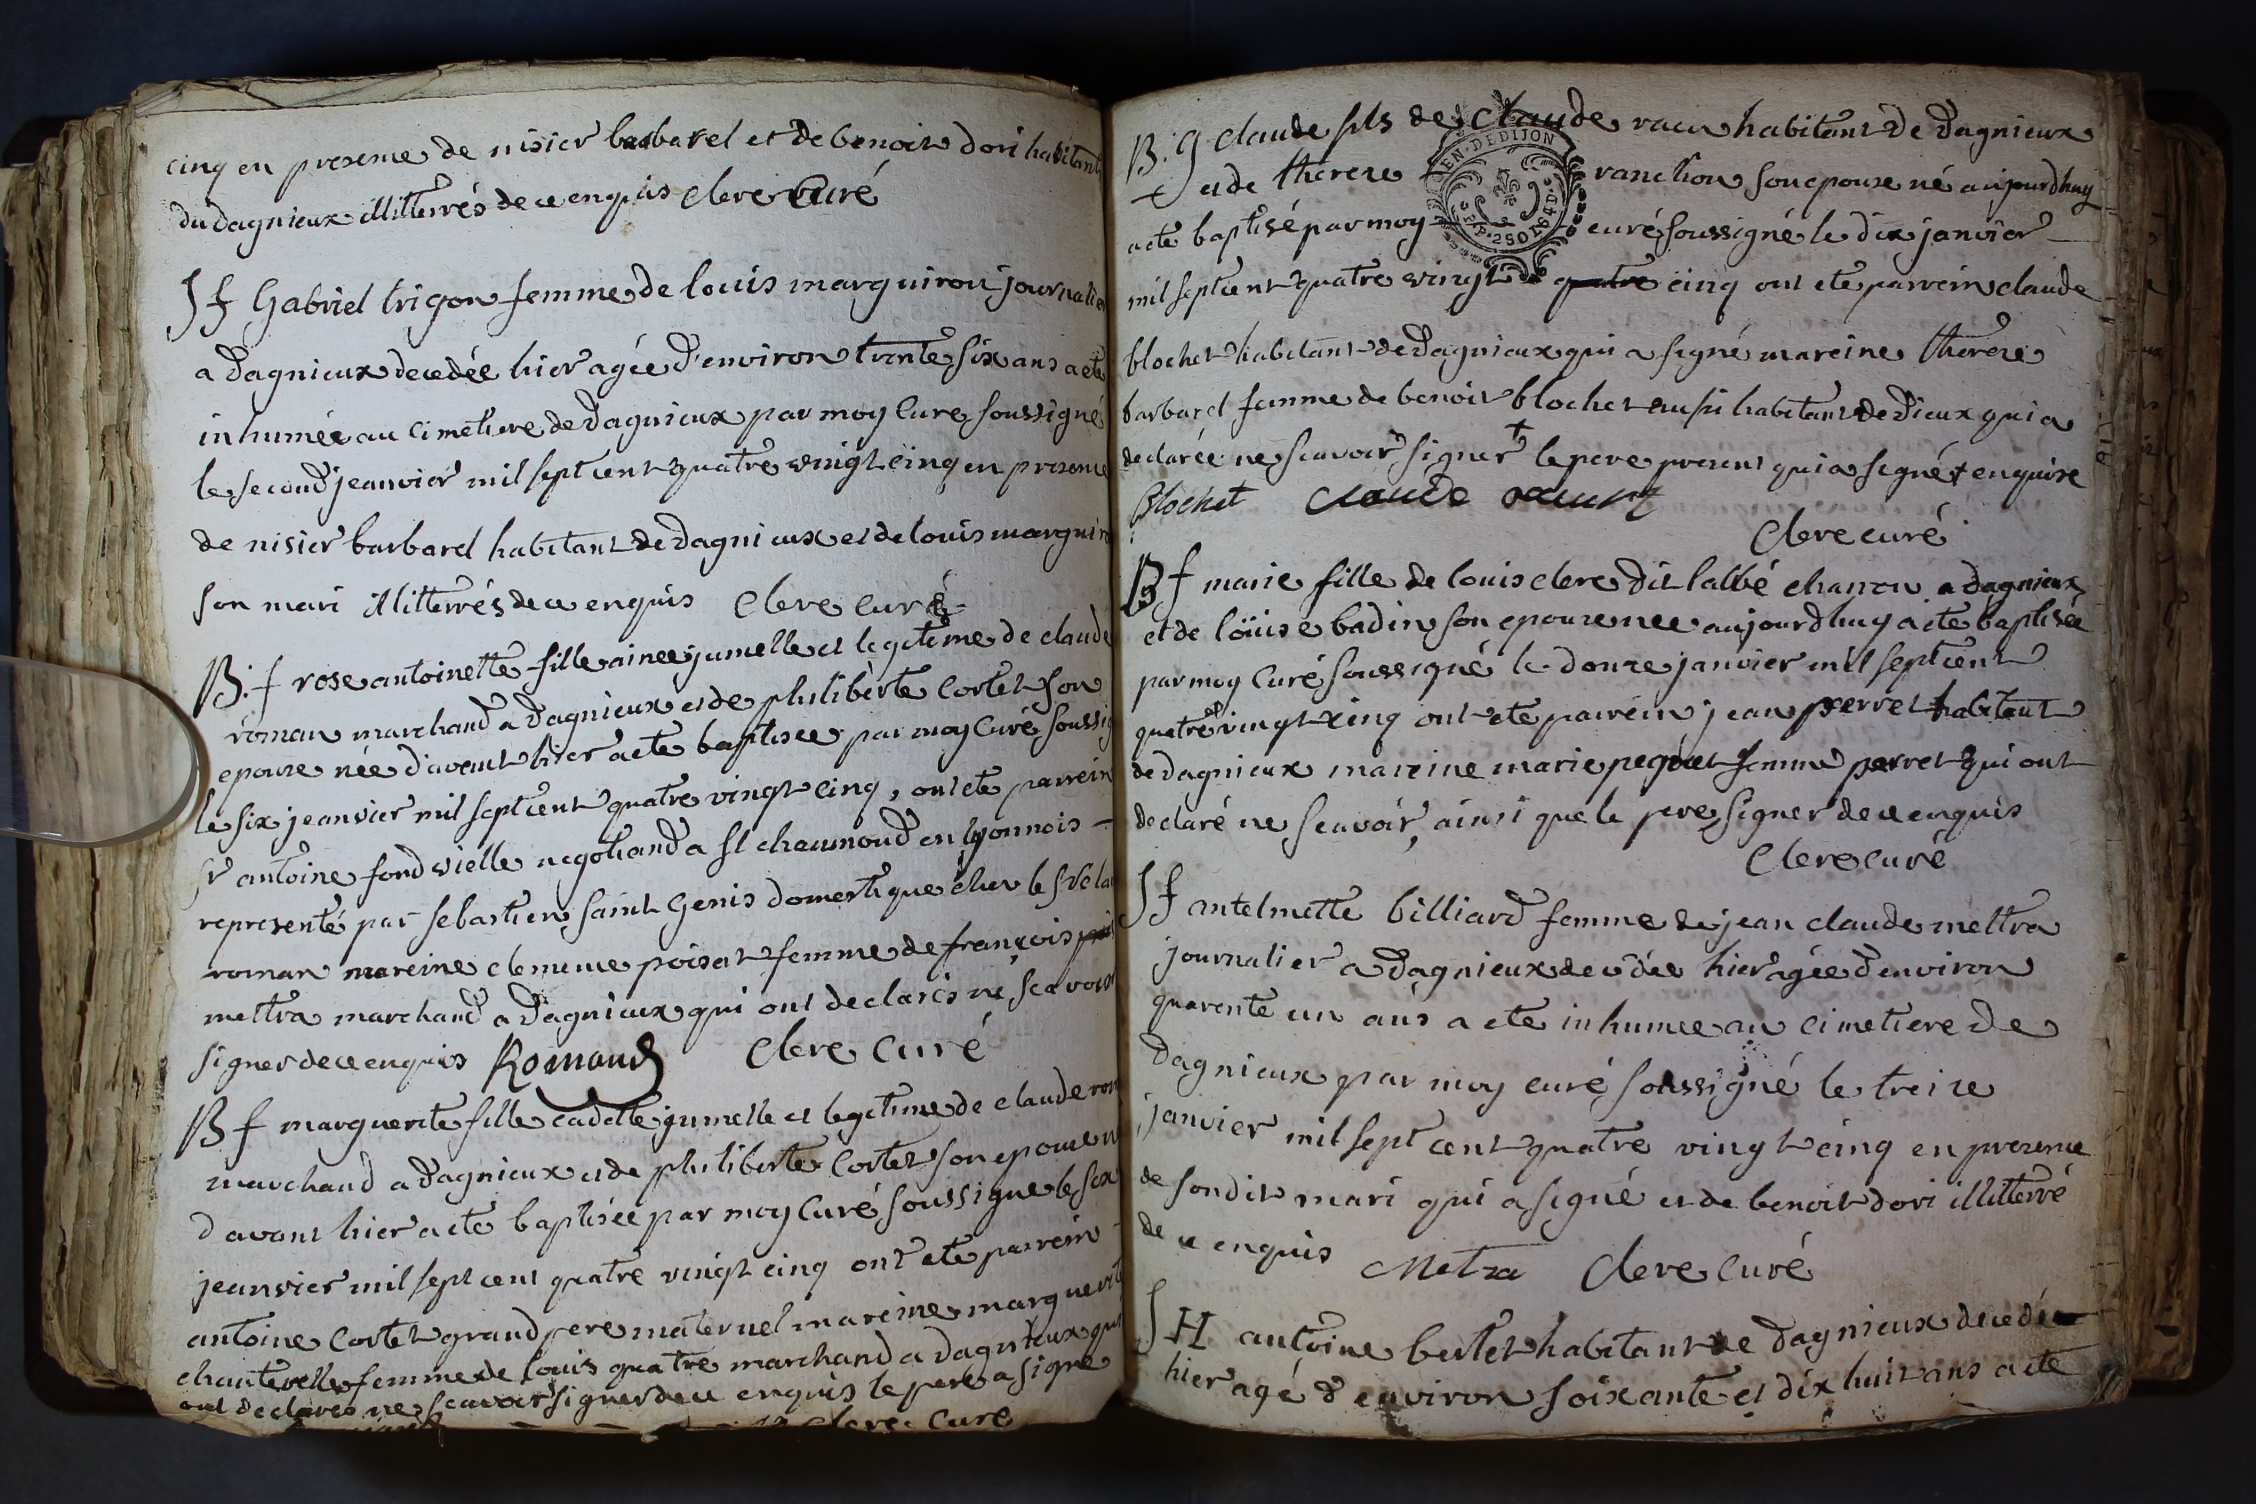 cinq en presence de nisier barbarel et de benoit dori habitant
du dagnieux illiterrés de ce enquis Clere Curé
Sf Gabriel trigon femme de louis marguiron journalier
a dagnieux decedée hier agée d'environ trente six ans a eté
inhumée au cimetiere de dagnieux par moy Cure soussigné
le second jeanvier mil sept cent quatre vingt cinq en presence
de nisier barbarel habitant de dagnieux et de louis marguiron
son mari illiterrés de ce enquis Clere Curé
B. f rose antoinette fille ainee jumelle et legitime de claude
roman marchand a dagnieux et de philiberte Cortet son
epouse née d'avant hier a eté baptisee par moy Curé soussig
le six jeanvier mil sept cent quatre vingt cinq, ont eté parrein
sr antoine fondvielle negotiand a st chaumond en lyonnois -
representé par sebastien saint Genis domestique chez le sr cla
roman mareine clemence poisat femme de françois
mettra marchand a dagnieux qui ont declarés ne scavoir
signer de ce enquis Romand Clere Curé
B f marguerite fille cadette jumelle et legitime de claude rom
marchand a dagnieux et de philiberte Cortet son epouse n
d'avant hier a eté baptisée par moy Curé soussigné le six
jeanvier mil sept cent quatre vingt cinq ont eté parrein -
antoine Cortet grand pere maternel mareine marguerite
chanterelle femme de louis quatre marchand a dagnieux qui
ont declarés ne scavoir signer de ce enquis le pere a signe
Clere Cure
B. g claude fils de claude vacu habitant de dagnieux
et de therese ranchon son epouse né aujourdhuy
a eté baptisé par moy curé soussigné le dix janvier
mil sept cent quatre vingt quatre cinq ont ete parrein claude
blochet habitant de dagnieux qui a signé mareine therese
barbarel femme de benoit blochet aussi habitant de dieux qui a
declarée ne scavoir signer + le pere present qui a signé + enquise
Blochet Claude
Clere curé
EN. DE DIJON
B f marie fille de louis clere dit l'abbé charron a dagnieux
et de loüise badin son epouse nee aujourdhuy a eté baptisée
par moy Curé soussigné le douze janvier mil sept cent
quatre vingt cinq ont eté parrein jean perret habitant
de dagnieux mareine marie pegout femme perret qui ont
declaré ne scavoir, ainsi que le pere signer de ce enquis
Clere curé
Sf antelmette billiard femme de jean claude mettra
journalier a dagnieux decedée hier agée d'environ
quarente un ans a eté inhumee au cimetiere de
dagnieux par moy curé soussigné le treize
janvier mil sept cent quatre vingt cinq en presence
de son dit mari qui a signé et de benoit dori illiterré
de ce enquis Metra Clere Curé
SH antoine bertet habitant de dagnieux decedé
hier agé d'environ soixante et dix huit ans a eté